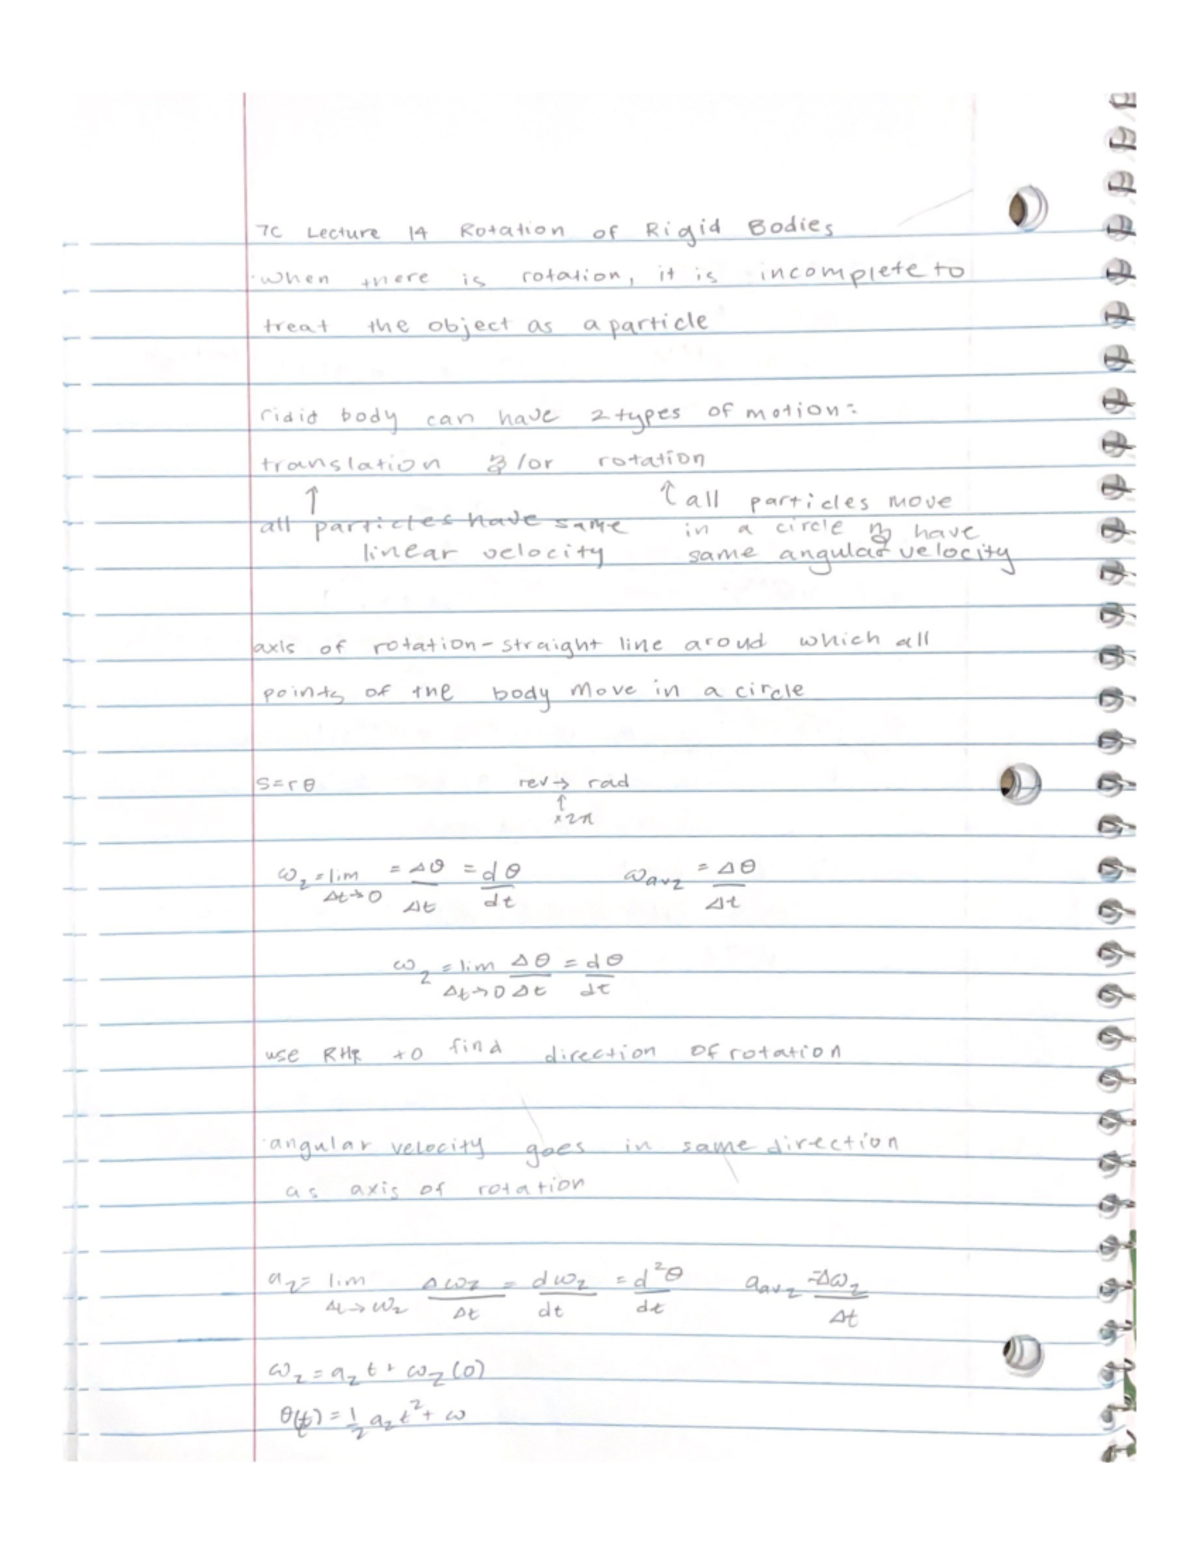 7C Lecture 14 Rotation of Rigid Bodies
·when there is rotation, it is incomplete to
treat the object as a particle
ridid body can have 2 types of motion:
translation & /or rotation
↑ ↑ all particles move
all particles have same in a circle & have
linear velocity same angular velocity
axis of rotation - straight line aroud which all
points of the body move in a circle
s=rθ rev → rad
↑
×2π
ω_z = lim = Δθ = dθ ω_avz = Δθ
Δt→0 Δt dt Δt
ω_z = lim Δθ = dθ
Δt→0 Δt dt
use RHR to find direction of rotation
·angular velocity goes in same direction
as axis of rotation
a_z = lim Δω_z = dω_z = d²θ a_avz = Δω_z
Δt→ω_z Δt dt dt Δt
ω_z = a_z t + ω_z(0)
θ(t) = 1/2 a_z t² + ω